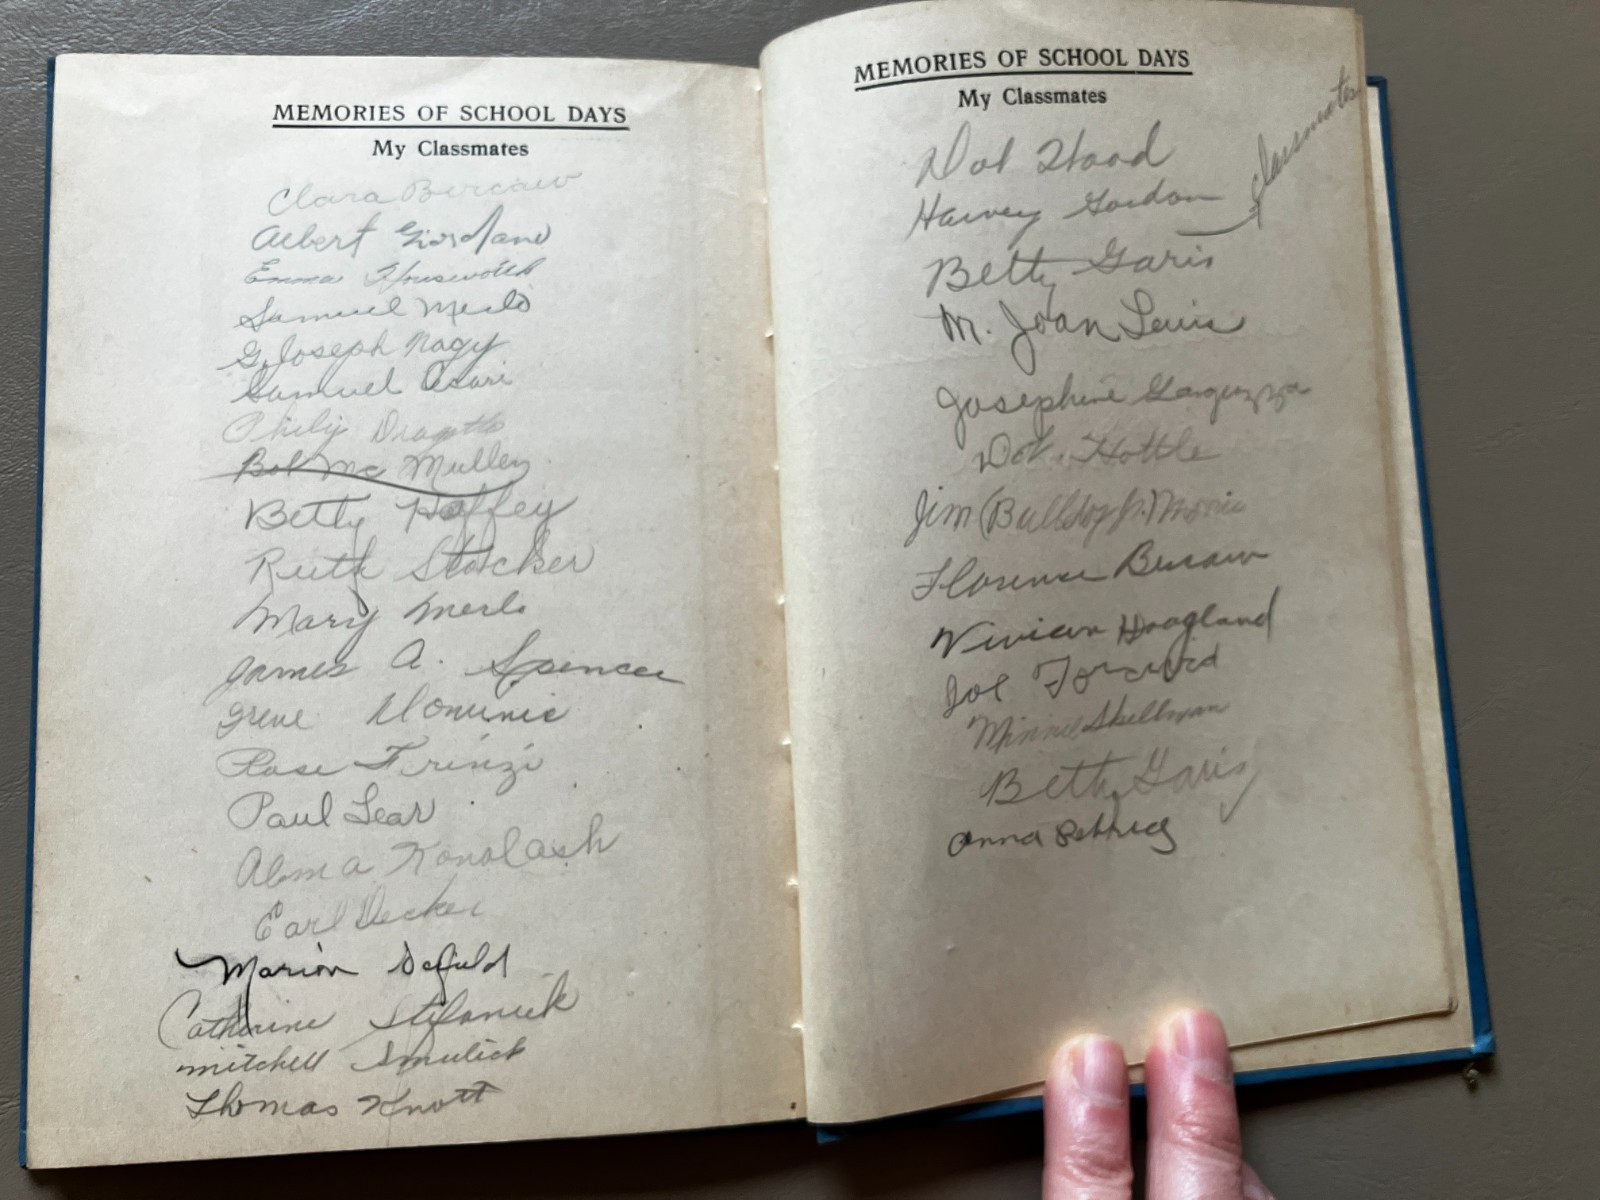 MEMORIES OF SCHOOL DAYS
My Classmates
Clara Bercaw
Albert Giordano
Emma Housworth
Samuel Merlo
G. Joseph Nagy
Samuel
Philip
Bob Mc Mullen
Betty Haffey
Ruth Stocker
Mary Merlo
James A. Spencer
Irene Dominic
Rose Frinzi
Paul Lear
Alma Konolash
Earl Decker
Marion
Catherine Stefanick
Mitchell Smulick
Thomas Knott
MEMORIES OF SCHOOL DAYS
My Classmates
Dot Hood
Harvey Gordon
classmates
Betty Garis
M. Joan Lewis
Josephine Garguzza
Dot. Hottle
Jim (Bulldog Jr.) Morris
Florence Bercaw
Vivian Hoagland
Joe
Minnie Skillman
Betty Garis
Anna